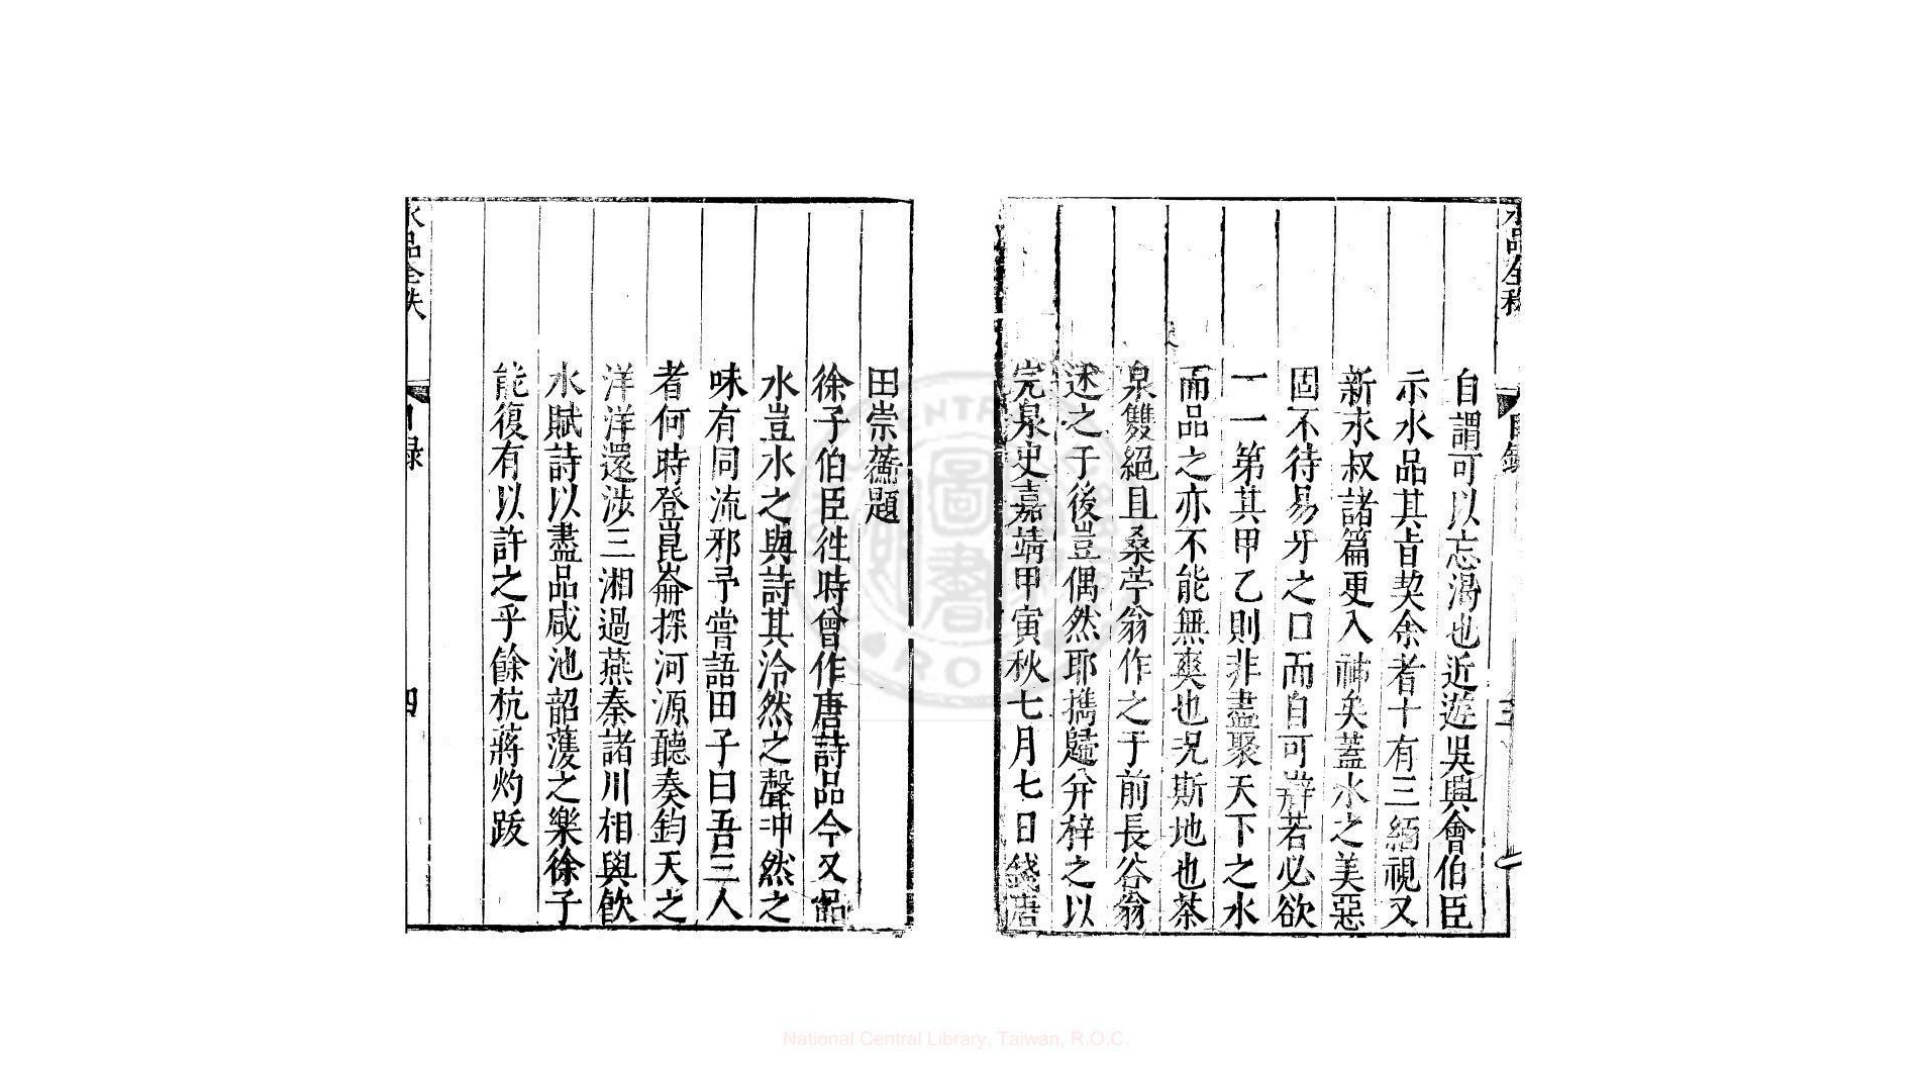 自謂可以忘渴也近遊吳興會伯臣
示水品其旨契余者十有三緬視又
新永叔諸篇更入神矣蓋水之美惡
固不待易牙之口而自可辨若必欲
一一第其甲乙則非盡聚天下之水
而品之亦不能無爽也况斯地也茶
泉雙絕且桑苧翁作之于前長谷翁
述之于後豈偶然耶攜歸并梓之以
完泉史嘉靖甲寅秋七月七日錢唐
田崇蘅題
徐子伯臣徃時曾作唐詩品今又品
水豈水之與詩其泠然之聲冲然之
味有同流邪予嘗語田子曰吾三人
者何時登崑崙探河源聽奏鈞天之
洋洋還涉三湘過燕秦諸川相與飲
水賦詩以盡品咸池韶濩之樂徐子
能復有以許之乎餘杭蔣灼跋
水品全秩
目錄
四
National Central Library, Taiwan, R.O.C.